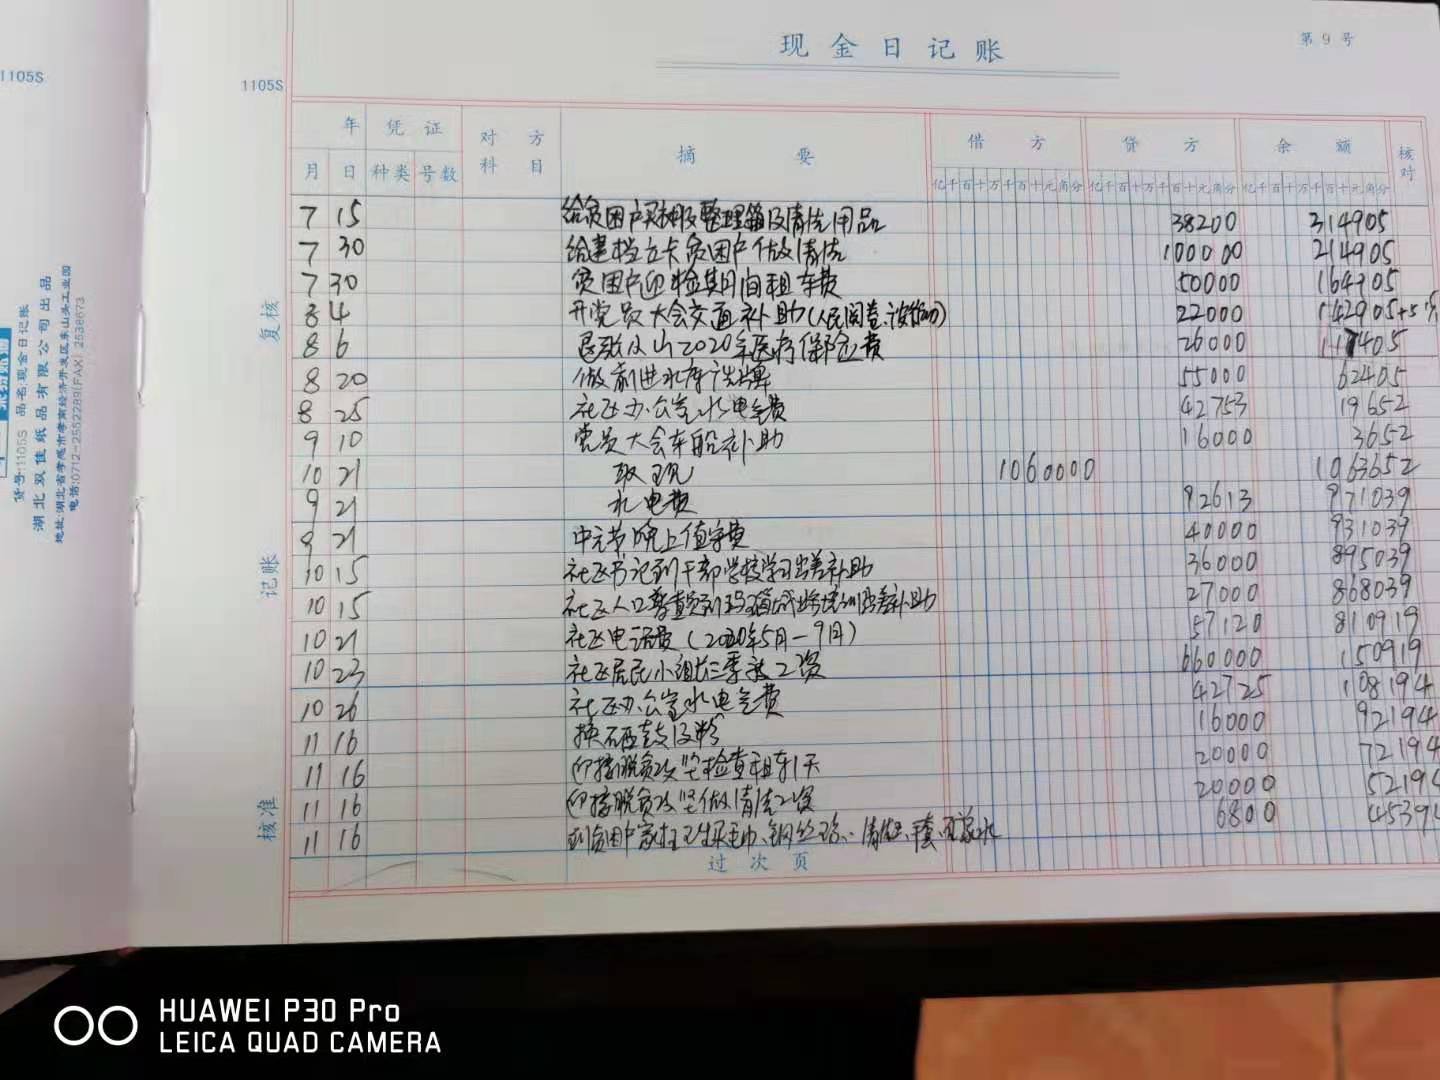 1105S
货号:1105S 品名:现金日记账
湖北双佳纸品有限公司出品
地址:湖北省孝感市孝南经济开发区东山头工业园
电话:0712-2552289(FAX) 2538673
1105S
现金日记账
第 9 号
年 凭证 对方科目 摘要 借方 贷方 余额 核对
月 日 种类 号数 亿千百十万千百十元角分 亿千百十万千百十元角分 亿千百十万千百十元角分
7 15 给贫困户买衣服整理箱及清洁用品 38200 314905
7 30 给建档立卡贫困户做清洁 100000 214905
7 30 贫困户迎检期间租车费 50000 164905
8 4 开党员大会交通补助(人民阅卷、) 22000 142905
8 6 2020年医疗保险费 26000 117405
8 20 做前进水库 牌 55000 62405
8 25 社区办公室水电气费 42753 19652
9 10 党员大会车船补助 16000 3652
10 21 取现 1060000 1063652
9 21 水电费 92613 971039
9 21 中元节晚上值守费 40000 931039
10 15 社区书记到干部学校学习出差补助 36000 895039
10 15 社区人口普查员到 培训出差补助 27000 868039
10 21 社区电话费(2020年5月一9月) 57120 810919
10 23 社区居民小组长三季度工资 660000 150919
10 26 社区办公室水电气费 42725 108194
11 16 换硒鼓及粉 16000 92194
11 16 迎接脱贫攻坚检查租车1天 20000 72194
11 16 迎接脱贫攻坚做清洁工资 20000 52194
11 16 到贫困户家 卫生买毛巾、钢丝球、清洁 手套、 水 6800 45394
过次页
复核
记账
核准
HUAWEI P30 Pro
LEICA QUAD CAMERA